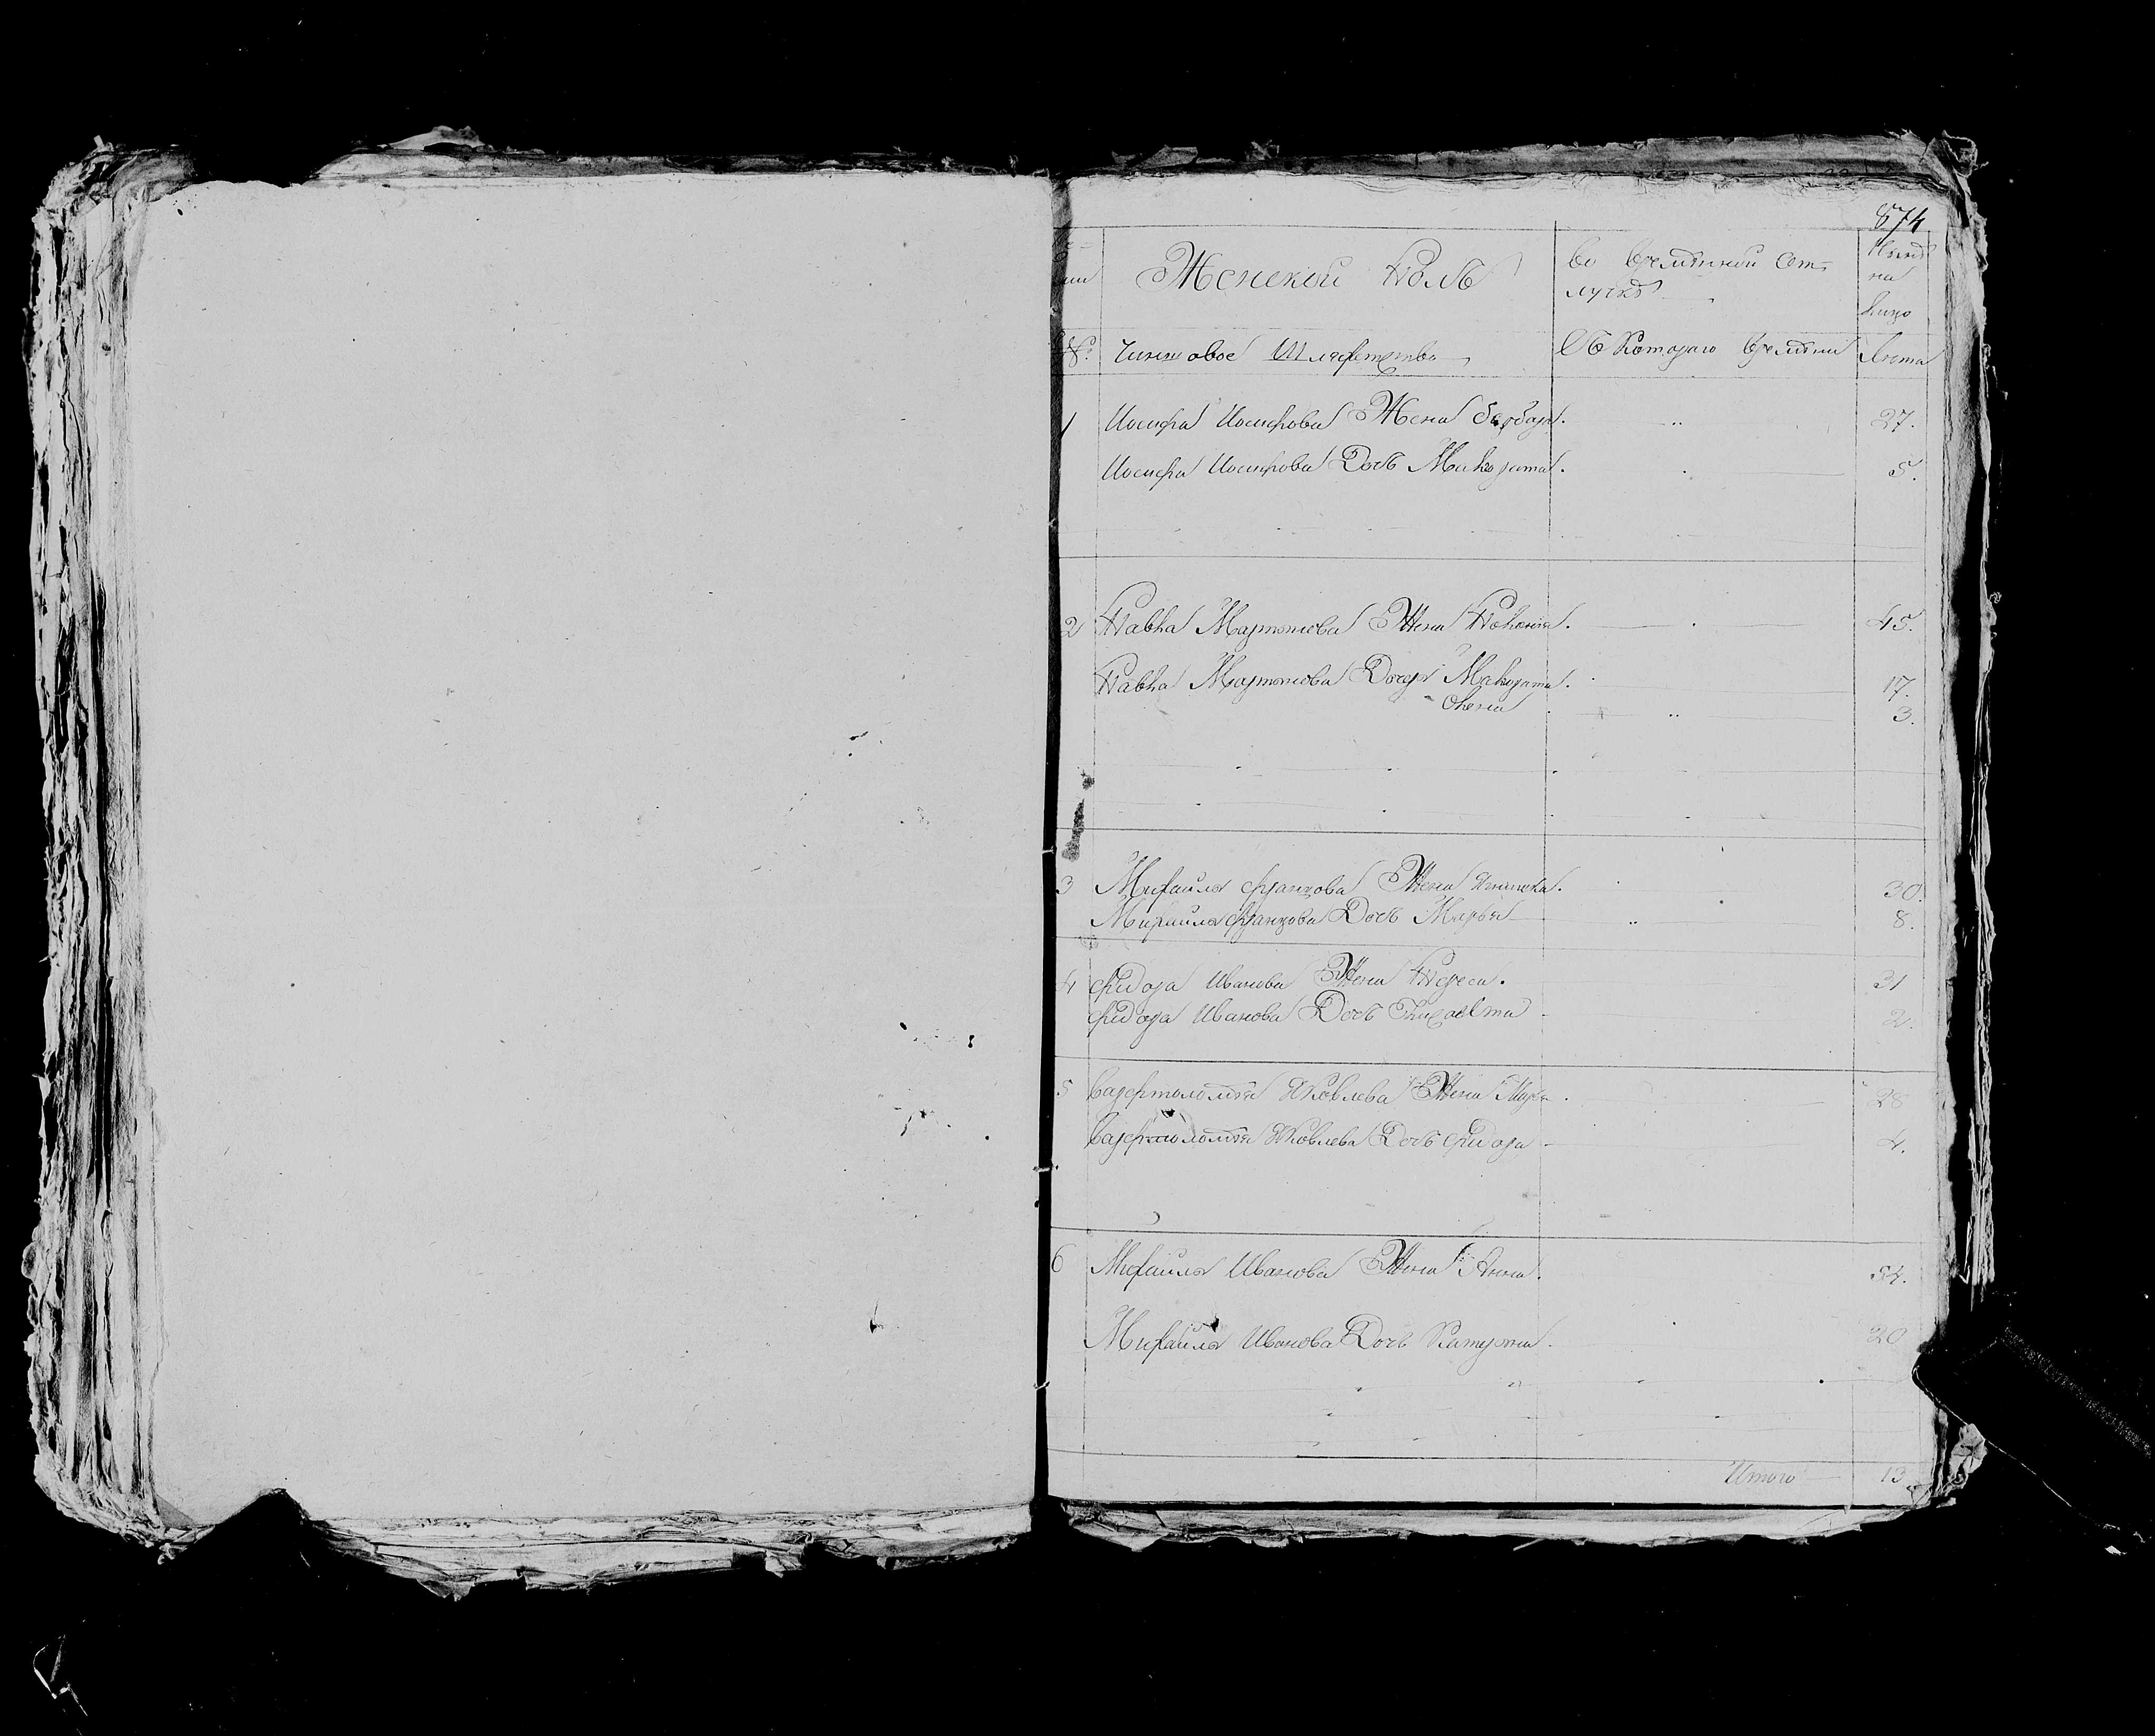 874
Женской Полъ
Во временной от=
лучкѣ
Нынѣ
на
лицо
№
Чиншовое Шляхетство
Съ Котораго времени
Лѣта
1 Иосифа Иосифова Жена Барбара. 27.
Иосифа Иосифова Дочь Малгората. 5.
2 Павла Мартинова Жена Полонія. 45.
Павла Мартинова Дочери Малгората. 17.
Олена 3.
3 Михайла Францова Жена 30.
Михайла Францова Дочь Марья 8.
4 Фидора Иванова Жена Тереса. 31
Фидора Иванова Дочь 2.
5 Варфтоломея Яковлева Жена Марья 28
Варфтоломея Яковлева Дочь Фидора 4.
6 Михайла Иванова Жена Анна. 54.
Михайла Иванова Дочь Катержина. 20
Итого 13